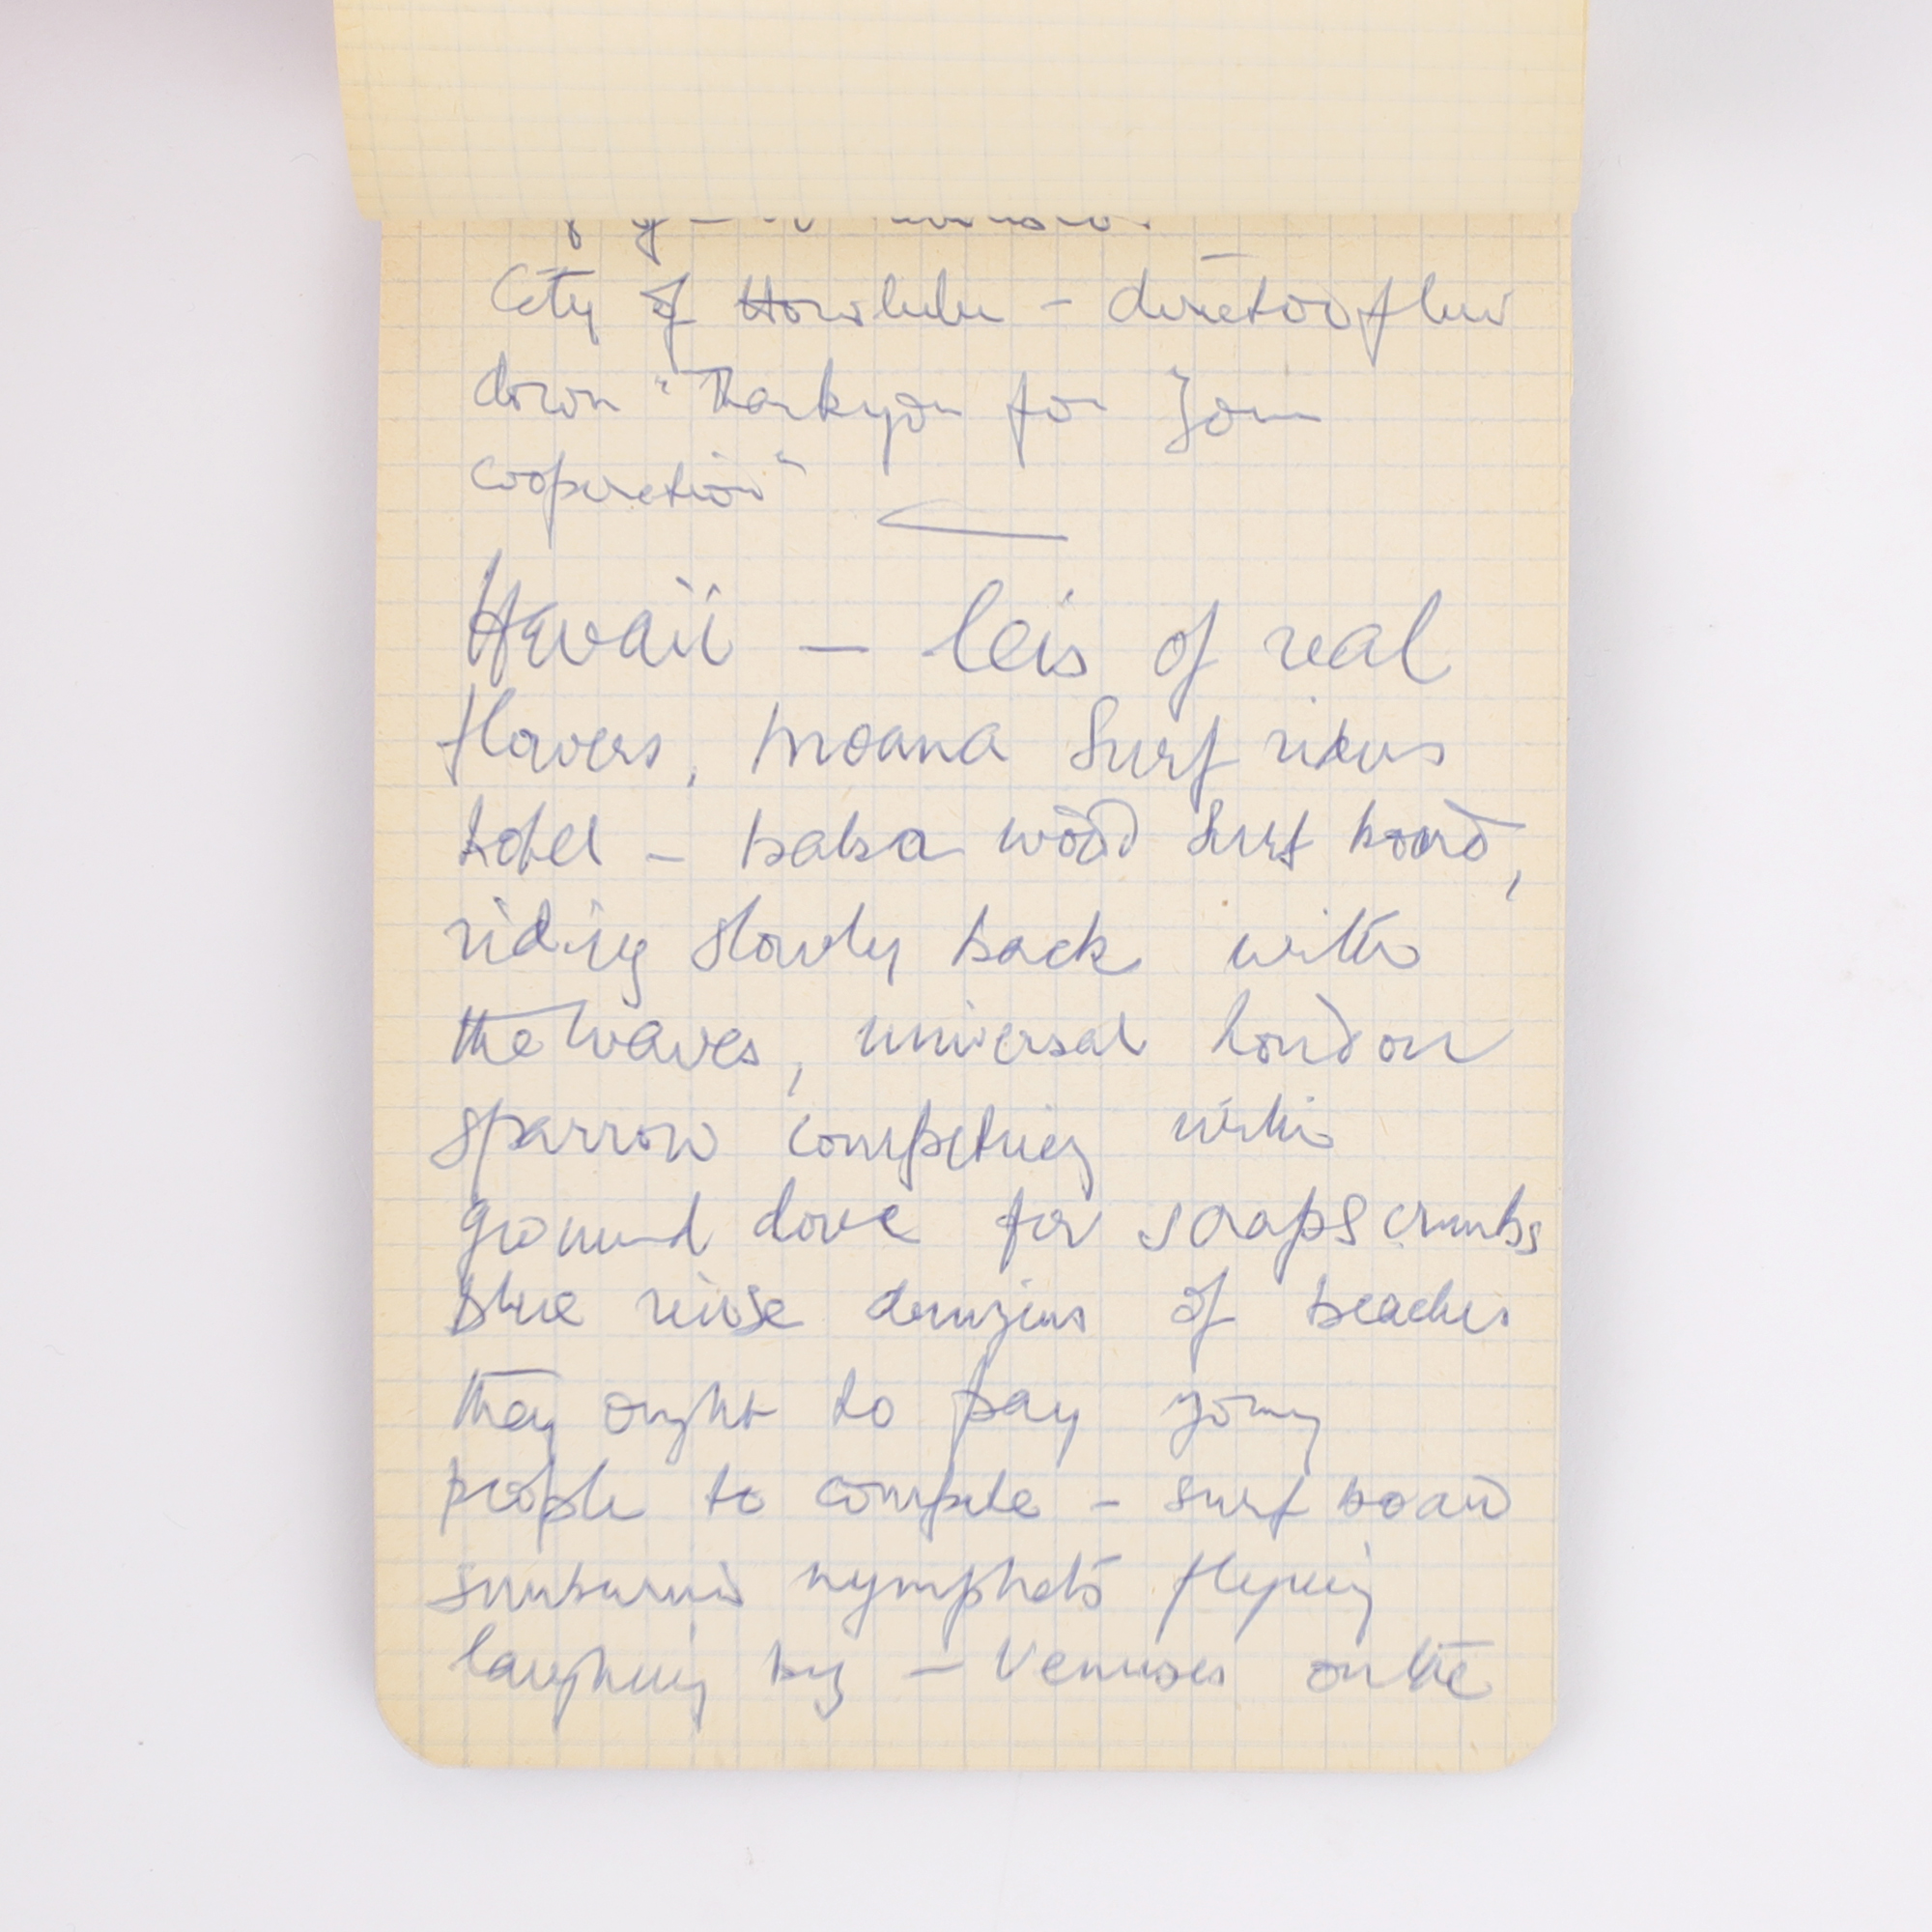 City of Honolulu - director flew
down "Thankyou for Your
cooperation"
Hawaii - leis of real
flowers, Moana Surf riders
hotel - balsa wood surf board,
riding slowly back with
the waves, universal London
sparrow competing with
ground dove for scraps crumbs
blue rinse denizens of beaches
they ought to pay young
people to compete - surf board
sunburnd nymphets flying
laughing by - Venuses on the